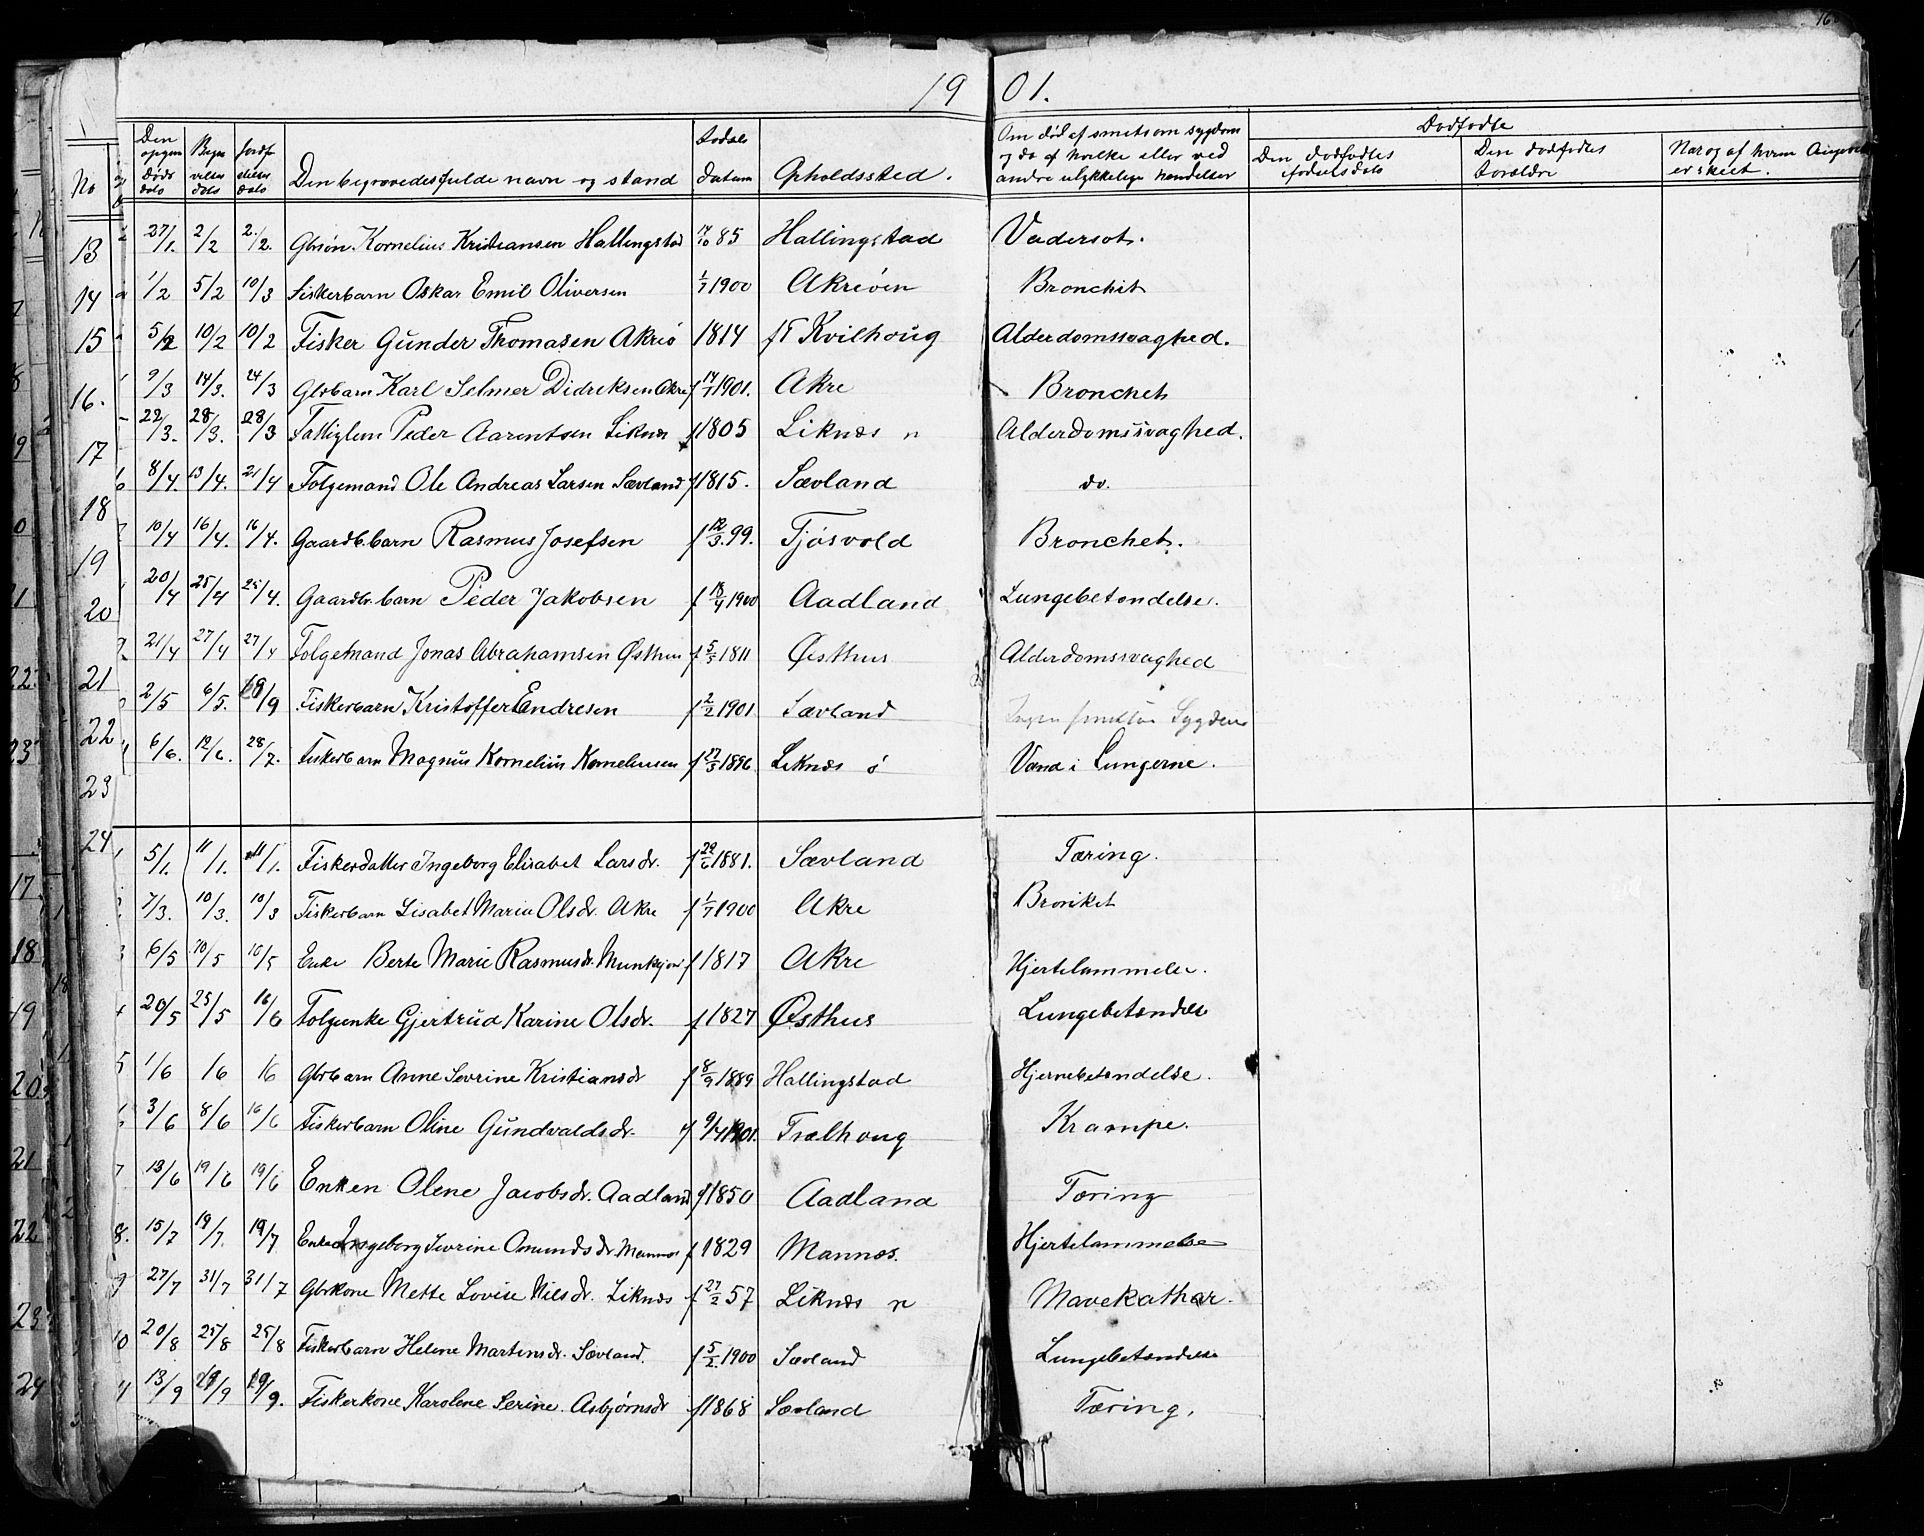 19 01.
No
Den opgivne døds dato
Begravelses dato
Jordfæstelses dato
Den begravedes fulde navn og stand
Fødselsdatum
Opholdssted.
Om død af smitsom sygdom og da af hvilke eller ved andre ulykkelige hændelser
Dødfødte
Den dødfødtes fødselsdato
Den dødfødtes forældre
Når og af hvem Anmeldelse er skeet.
13 14 15 16. 17 18 19 20 21 22 23 24
27/1. 2/2 2/2. Gbrsøn Kornelius Kristiansen Hallingstad 14/10 85 Hallingstad Vadersot.
1/2 5/2 10/3 Fiskerbarn Oskar Emil Oliversen 1/7 1900 Akreøen Bronchit
5/2 10/2 10/2 Fisker Gunder Thomasen Akrø 1814 fT Kvilhoug Alderdomssvaghed.
9/3 14/3. 24/3 Gbrbarn Karl Selmer Didreksen Akre f 14/1 1901. Akre Bronchet
22/3. 28/3. 28/3 Fattiglem Peder Aarentsen Liknes f 1805 Liknæs n Alderdomssvaghed.
8/4. 13/4. 21/4 Folgemand Ole Andreas Larsen Sævland f 1815. Sævland do.
10/4 16/4. 16/4. Gaardb.barn Rasmus Josefsen f 12/3. 99. Tjøsvold Bronchet.
20/4 25/4 25/4. Gaardbr. barn Peder Jakobsen f 13/4 1900 Aadland Lungebetendelse.
21/4 27/4 27/4 Folgemand Jonas Abrahamsen Østhus f 5/5 1811 Østhus Alderdomssvaghed
2/5 6/5. 19/9 Fiskerbarn Kristoffer Endresen f 2/2 1901 Sævland Ingen smitsom Sygdom
6/6. 12/6. 28/7. Fiskerbarn Magnus Kornelius Korneliussen f 27/3 1896 Liknæs ø Vand i Lungerne.
1 5/1. 11/1. 11/1. Fiskerdatter Ingeborg Elisabet Larsdr. f 22/6 1881. Sævland Tæring.
2. 7/3. 10/3. 10/3 Fiskerbarn Lisabet Marie Olsdr. Akre f 1/7 1900 Akre Bronket
3 6/5 10/5 16/5 Enke Berte Marie Rasmusdr. Munkejor f 1817 Akre Hjertelammelse.
4 20/5 25/5 16/6 Folgenke Gjertrud Karine Olsdr. f 1827 Østhus Lungebetændelse
5 1/6 16 16 Gbrbarn Anne Severine Kristiansdr f 8/9 1889 Hallingstad Hjernebetendelse.
6 3/6 8/6 16/6 Fiskerbarn Oline Gundvaldsdr. f 9/4 1901. Trælhoug Krampe.
7 13/6 19/6 19/6 Enken Olene Jacobsdr. Aadland f 1850 Aadland Tæring
8. 15/7 19/7. 19/7 Enke Ingeborg Severine Omundsdr. Mannes f 1829 Mannæs. Hjertelammelse
9 27/7 31/7 31/7 Gbrkone Mette Lovise Nilsdr. Liknæs f 27/2 57 Liknæs n Mavekathar.
10 20/8 25/8 25/8 Fiskerbarn Helene Martinsdr. Sævland. f 5/2. 1900 Sævland Lungebetændelse
11 13/9 19/9 19/9. Fiskerkone Karolene Serine Asbjørnsdr f 1868 Sævland Tæring.